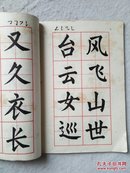 风飞山世
台云女巡
又久衣长